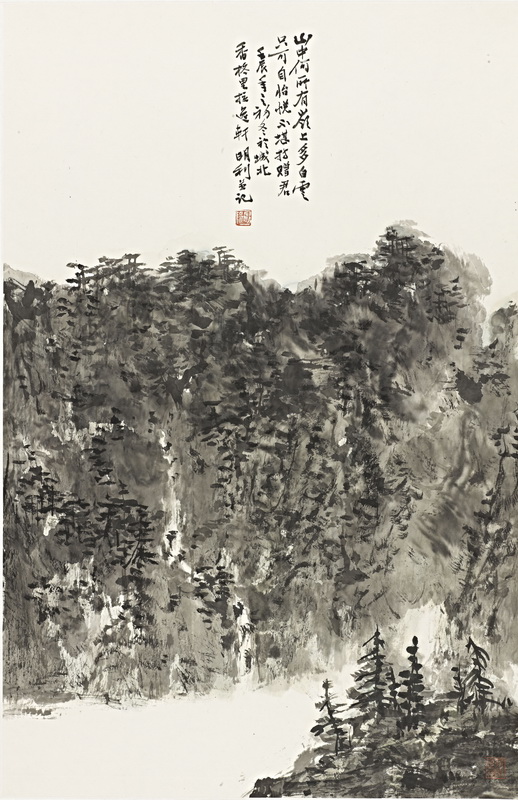 山中何所有嶺上多白雲
只可自怡悦不堪持赠君
壬辰年之初冬於城北
香格里拉逸軒 明利並记